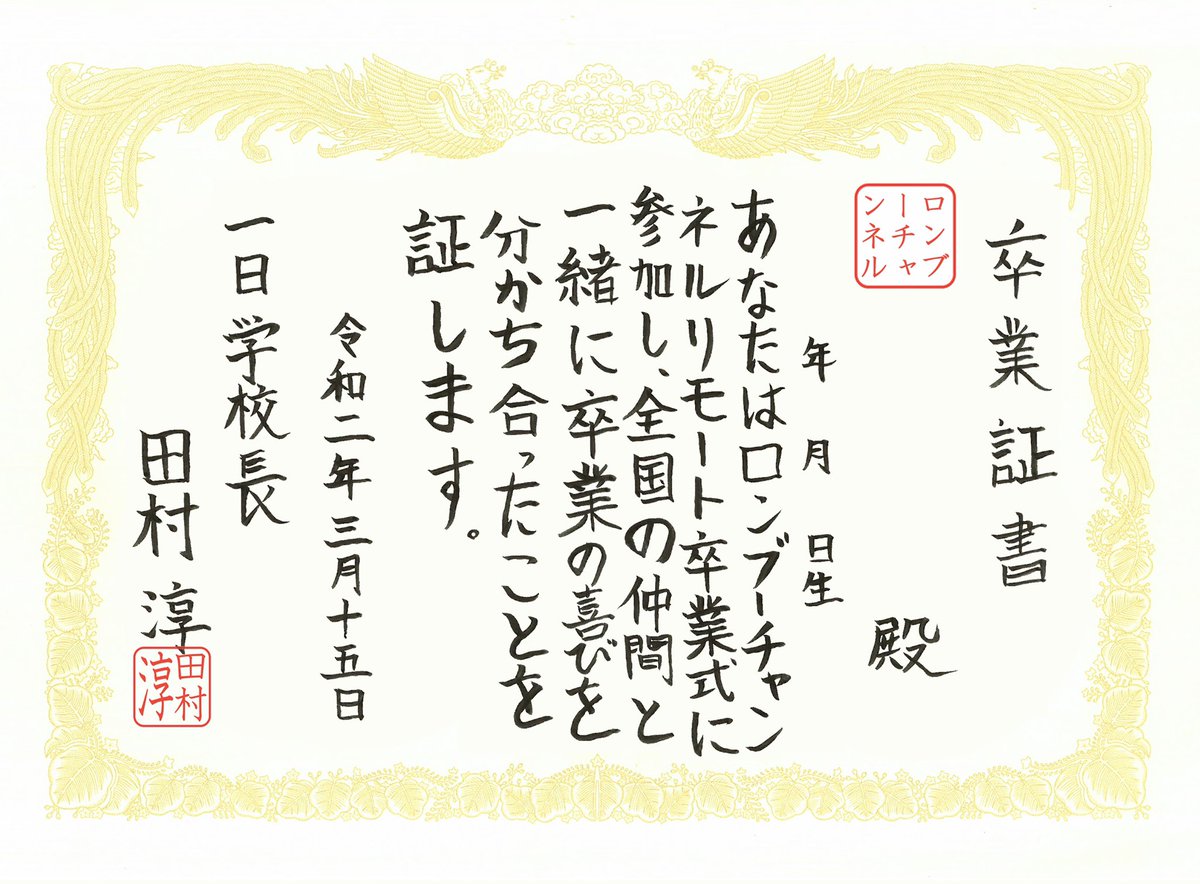 卒業証書
ロンブ
ーチャ
ンネル
殿
年 月 日生
あなたはロンブーチャン
ネルリモート卒業式に
参加し、全国の仲間と
一緒に卒業の喜びを
分かち合ったことを
証します。
令和二年三月十五日
一日学校長
田村 淳
田村
淳